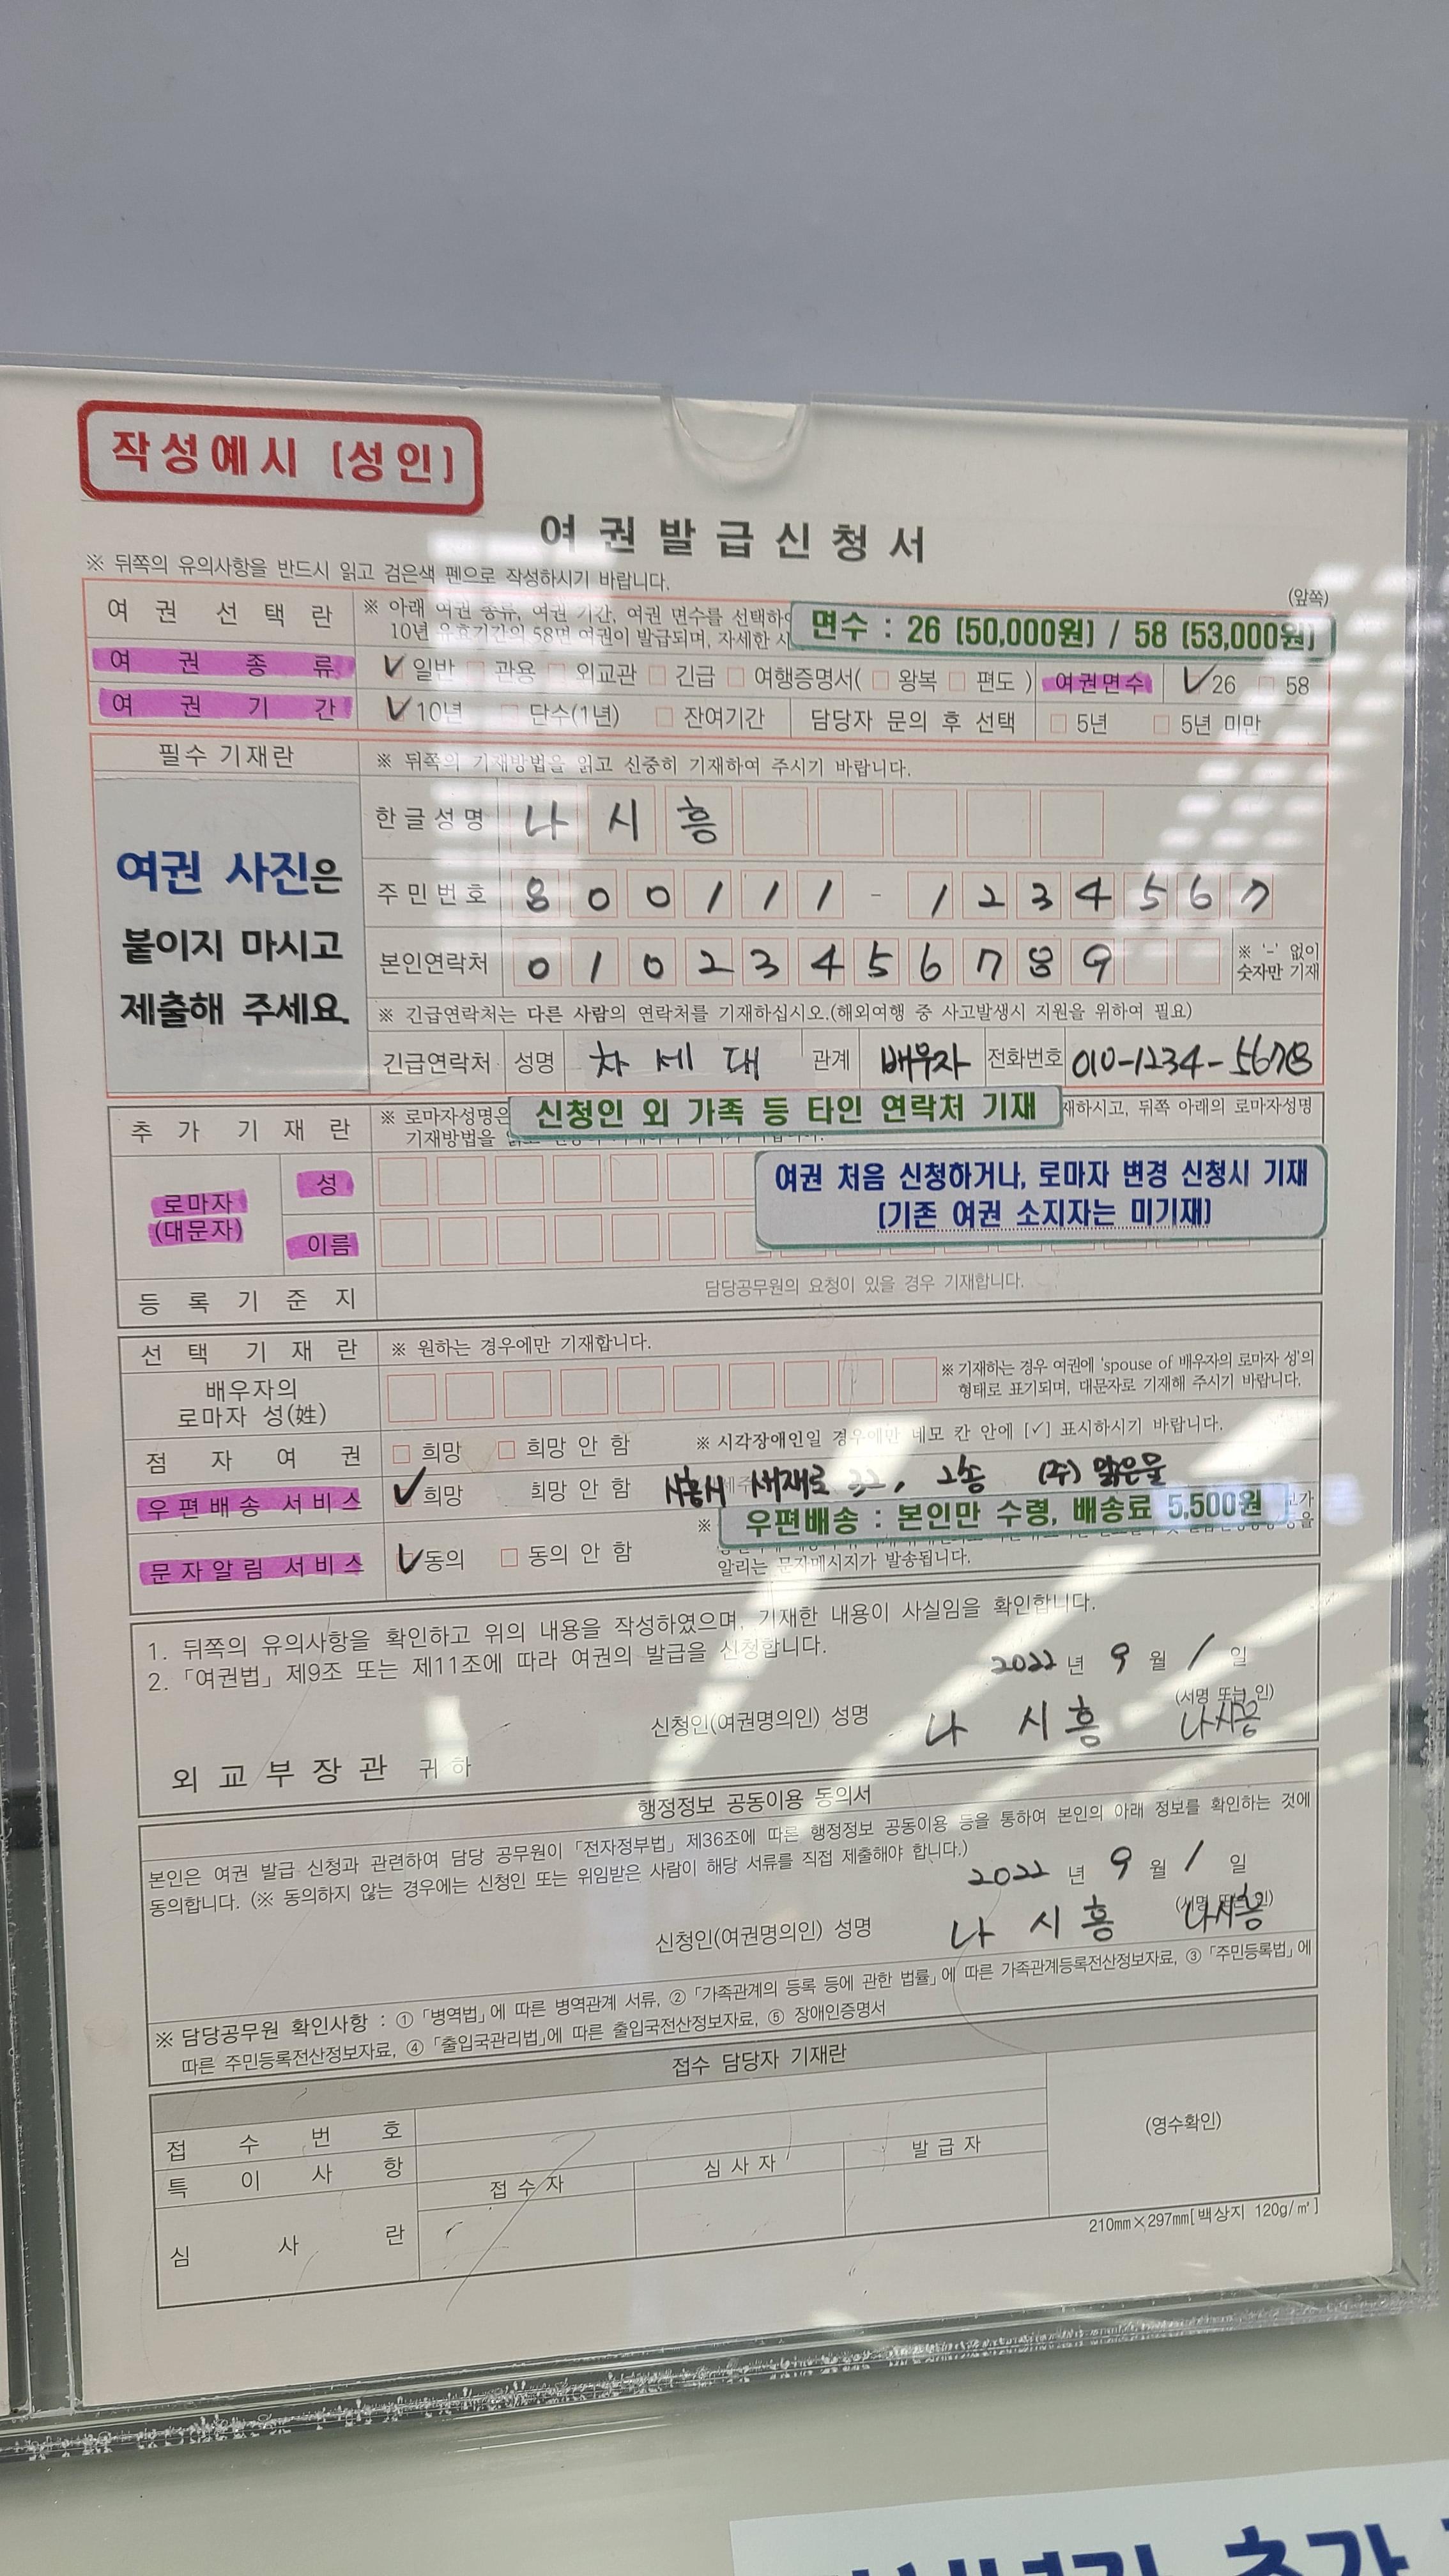 작성예시 [성인]
여권발급신청서
※ 뒤쪽의 유의사항을 반드시 읽고 검은색 펜으로 작성하시기 바랍니다.
(앞쪽)
여권 선택란
※ 아래 여권 종류, 여권 기간, 여권 면수를 선택하여
10년 유효기간의 58면 여권이 발급되며, 자세한
면수 : 26 (50,000원) / 58 (53,000원)
여권종류 ✓일반 □ 관용 □ 외교관 □ 긴급 □ 여행증명서( □ 왕복 □ 편도 ) 여권면수 ✓26 □ 58
여권기간 ✓10년 □ 단수(1년) □ 잔여기간 담당자 문의 후 선택 □ 5년 □ 5년 미만
필수 기재란 ※ 뒤쪽의 기재방법을 읽고 신중히 기재하여 주시기 바랍니다.
여권 사진은
붙이지 마시고
제출해 주세요.
한글성명 나시흥
주민번호 800111-1234567
본인연락처 01023456789
※ '-' 없이
숫자만 기재
※ 긴급연락처는 다른 사람의 연락처를 기재하십시오.(해외여행 중 사고발생시 지원을 위하여 필요)
긴급연락처 성명 차세대 관계 배우자 전화번호 010-1234-5678
신청인 외 가족 등 타인 연락처 기재
추가 기재란
※ 로마자성명은 재하시고, 뒤쪽 아래의 로마자성명
기재방법을
여권 처음 신청하거나, 로마자 변경 신청시 기재
(기존 여권 소지자는 미기재)
로마자
(대문자)
성
이름
등록기준지 담당공무원의 요청이 있을 경우 기재합니다.
선택 기재란 ※ 원하는 경우에만 기재합니다.
배우자의
로마자 성(姓)
※ 기재하는 경우 여권에 'spouse of 배우자의 로마자 성'의
형태로 표기되며, 대문자로 기재해 주시기 바랍니다.
점자여권 □ 희망 □ 희망 안 함 ※ 시각장애인일 경우에만 네모 칸 안에 [✓] 표시하시기 바랍니다.
우편배송 서비스 ✓희망 희망 안 함 시흥시 새재로 32, 2층 (주) 맑은물
우편배송 : 본인만 수령, 배송료 5,500원
문자알림 서비스 ✓동의 □ 동의 안 함
알리는 문자메시지가 발송됩니다.
1. 뒤쪽의 유의사항을 확인하고 위의 내용을 작성하였으며, 기재한 내용이 사실임을 확인합니다.
2. 「여권법」 제9조 또는 제11조에 따라 여권의 발급을 신청합니다.
2022년 9월 1일
신청인(여권명의인) 성명 나시흥 (서명 또는 인) 나시흥
외교부장관 귀하
행정정보 공동이용 동의서
본인은 여권 발급 신청과 관련하여 담당 공무원이 「전자정부법」 제36조에 따른 행정정보 공동이용 등을 통하여 본인의 아래 정보를 확인하는 것에
동의합니다. (※ 동의하지 않는 경우에는 신청인 또는 위임받은 사람이 해당 서류를 직접 제출해야 합니다.)
2022년 9월 1일
신청인(여권명의인) 성명 나시흥 (서명 또는 인) 나시흥
※ 담당공무원 확인사항 : ① 「병역법」에 따른 병역관계 서류, ② 「가족관계의 등록 등에 관한 법률」에 따른 가족관계등록전산정보자료, ③ 「주민등록법」에
따른 주민등록전산정보자료, ④ 「출입국관리법」에 따른 출입국전산정보자료, ⑤ 장애인증명서
접수 담당자 기재란
접수번호
(영수확인)
특이사항
심사란 접수자 심사자 발급자
210mm×297mm[백상지 120g/㎡]